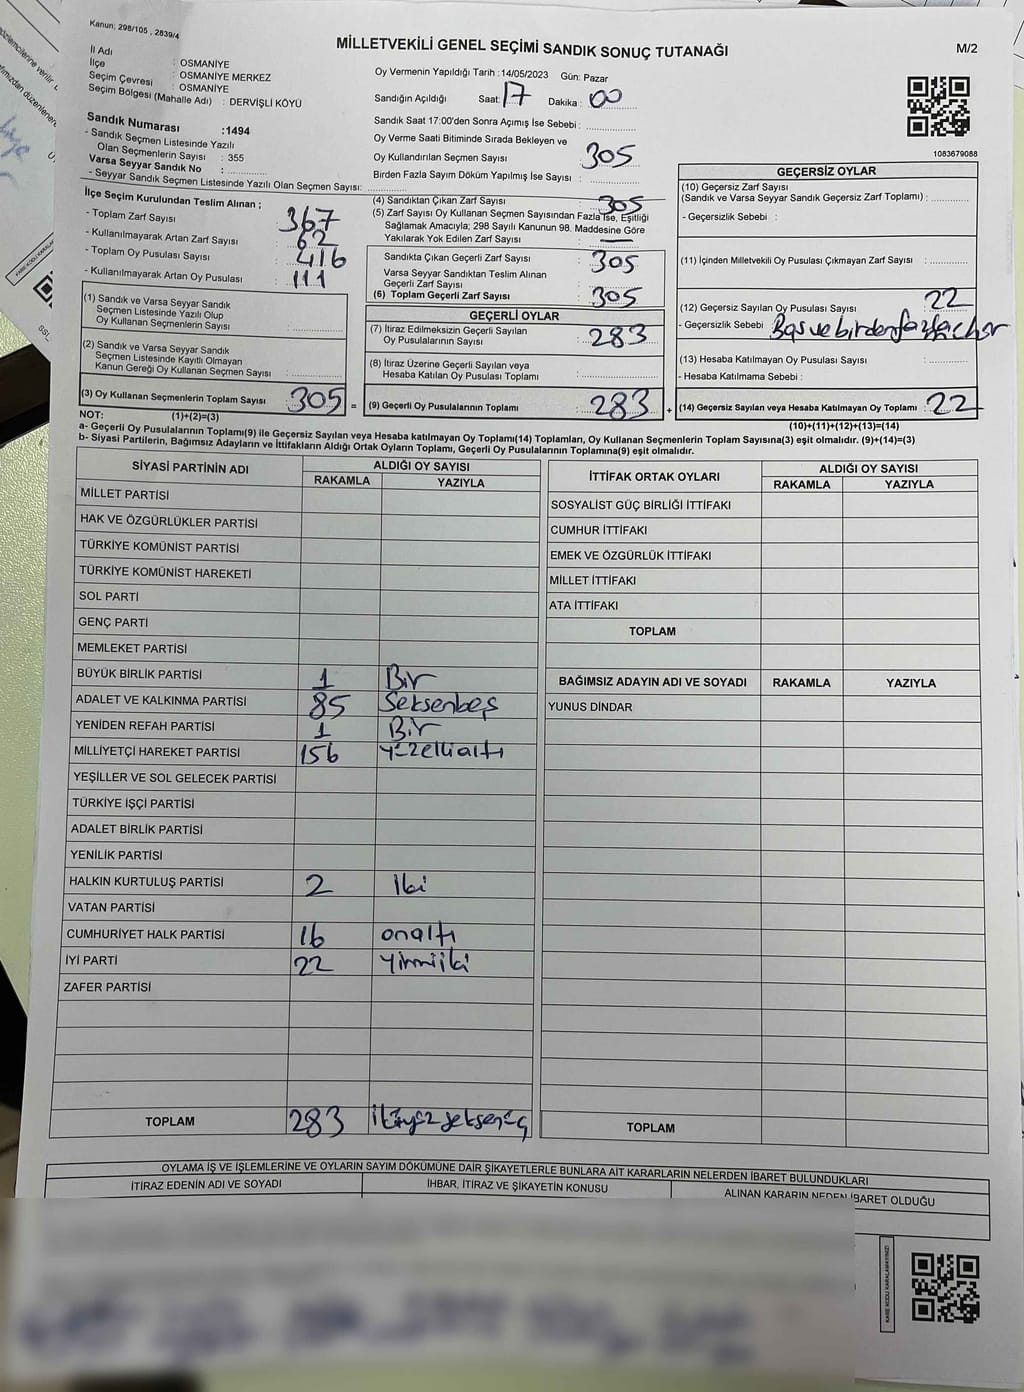 Kanun; 298/105 , 2839/4
MİLLETVEKİLİ GENEL SEÇİMİ SANDIK SONUÇ TUTANAĞI
M/2
İl Adı : OSMANİYE
İlçe : OSMANİYE MERKEZ
Seçim Çevresi : OSMANİYE
Seçim Bölgesi (Mahalle Adı) : DERVİŞLİ KÖYÜ
Sandık Numarası :1494
- Sandık Seçmen Listesinde Yazılı
Olan Seçmenlerin Sayısı : 355
Varsa Seyyar Sandık No :
- Seyyar Sandık Seçmen Listesinde Yazılı Olan Seçmen Sayısı:
İlçe Seçim Kurulundan Teslim Alınan ;
- Toplam Zarf Sayısı : 367
- Kullanılmayarak Artan Zarf Sayısı : 62
- Toplam Oy Pusulası Sayısı : 416
- Kullanılmayarak Artan Oy Pusulası : 111
(1) Sandık ve Varsa Seyyar Sandık
Seçmen Listesinde Yazılı Olup
Oy Kullanan Seçmenlerin Sayısı :
(2) Sandık ve Varsa Seyyar Sandık
Seçmen Listesinde Kayıtlı Olmayan
Kanun Gereği Oy Kullanan Seçmen Sayısı :
(3) Oy Kullanan Seçmenlerin Toplam Sayısı : 305 =
Oy Vermenin Yapıldığı Tarih :14/05/2023 Gün: Pazar
Sandığın Açıldığı Saat: 17 Dakika : 00
Sandık Saat 17:00'den Sonra Açımış İse Sebebi :
Oy Verme Saati Bitiminde Sırada Bekleyen ve
Oy Kullandırılan Seçmen Sayısı : 305
Birden Fazla Sayım Döküm Yapılmış İse Sayısı :
(4) Sandıktan Çıkan Zarf Sayısı : 305
(5) Zarf Sayısı Oy Kullanan Seçmen Sayısından Fazla İse, Eşitliği
Sağlamak Amacıyla; 298 Sayılı Kanunun 98. Maddesine Göre
Yakılarak Yok Edilen Zarf Sayısı :
Sandıkta Çıkan Geçerli Zarf Sayısı : 305
Varsa Seyyar Sandıktan Teslim Alınan
Geçerli Zarf Sayısı :
(6) Toplam Geçerli Zarf Sayısı : 305
GEÇERLİ OYLAR
(7) İtiraz Edilmeksizin Geçerli Sayılan
Oy Pusulalarının Sayısı : 283
(8) İtiraz Üzerine Geçerli Sayılan veya
Hesaba Katılan Oy Pusulası Toplamı :
(9) Geçerli Oy Pusulalarının Toplamı : 283 +
1083679088
GEÇERSİZ OYLAR
(10) Geçersiz Zarf Sayısı
(Sandık ve Varsa Seyyar Sandık Geçersiz Zarf Toplamı) :
- Geçersizlik Sebebi :
(11) İçinden Milletvekili Oy Pusulası Çıkmayan Zarf Sayısı :
(12) Geçersiz Sayılan Oy Pusulası Sayısı : 22
- Geçersizlik Sebebi : Boş ve birden fazla
(13) Hesaba Katılmayan Oy Pusulası Sayısı :
- Hesaba Katılmama Sebebi :
(14) Geçersiz Sayılan veya Hesaba Katılmayan Oy Toplamı : 22
NOT: (1)+(2)=(3)
(10)+(11)+(12)+(13)=(14)
a- Geçerli Oy Pusulalarının Toplamı(9) ile Geçersiz Sayılan veya Hesaba katılmayan Oy Toplamı(14) Toplamları, Oy Kullanan Seçmenlerin Toplam Sayısına(3) eşit olmalıdır. (9)+(14)=(3)
b- Siyasi Partilerin, Bağımsız Adayların ve İttifakların Aldığı Ortak Oyların Toplamı, Geçerli Oy Pusulalarının Toplamına(9) eşit olmalıdır.
SİYASİ PARTİNİN ADI ALDIĞI OY SAYISI
RAKAMLA YAZIYLA
MİLLET PARTİSİ
HAK VE ÖZGÜRLÜKLER PARTİSİ
TÜRKİYE KOMÜNİST PARTİSİ
TÜRKİYE KOMÜNİST HAREKETİ
SOL PARTİ
GENÇ PARTİ
MEMLEKET PARTİSİ
BÜYÜK BİRLİK PARTİSİ 1 Bir
ADALET VE KALKINMA PARTİSİ 85 Seksenbeş
YENİDEN REFAH PARTİSİ 1 Bir
MİLLİYETÇİ HAREKET PARTİSİ 156 yüzellialtı
YEŞİLLER VE SOL GELECEK PARTİSİ
TÜRKİYE İŞÇİ PARTİSİ
ADALET BİRLİK PARTİSİ
YENİLİK PARTİSİ
HALKIN KURTULUŞ PARTİSİ 2 iki
VATAN PARTİSİ
CUMHURİYET HALK PARTİSİ 16 onaltı
İYİ PARTİ 22 yirmiiki
ZAFER PARTİSİ
TOPLAM 283 ikiyüzseksenüç
İTTİFAK ORTAK OYLARI ALDIĞI OY SAYISI
RAKAMLA YAZIYLA
SOSYALİST GÜÇ BİRLİĞİ İTTİFAKI
CUMHUR İTTİFAKI
EMEK VE ÖZGÜRLÜK İTTİFAKI
MİLLET İTTİFAKI
ATA İTTİFAKI
TOPLAM
BAĞIMSIZ ADAYIN ADI VE SOYADI RAKAMLA YAZIYLA
YUNUS DİNDAR
TOPLAM
OYLAMA İŞ VE İŞLEMLERİNE VE OYLARIN SAYIM DÖKÜMÜNE DAİR ŞİKAYETLERLE BUNLARA AİT KARARLARIN NELERDEN İBARET BULUNDUKLARI
İTİRAZ EDENİN ADI VE SOYADI İHBAR, İTİRAZ VE ŞİKAYETİN KONUSU ALINAN KARARIN NEDEN İBARET OLDUĞU
KARE KODU KARALAMAYINIZ!